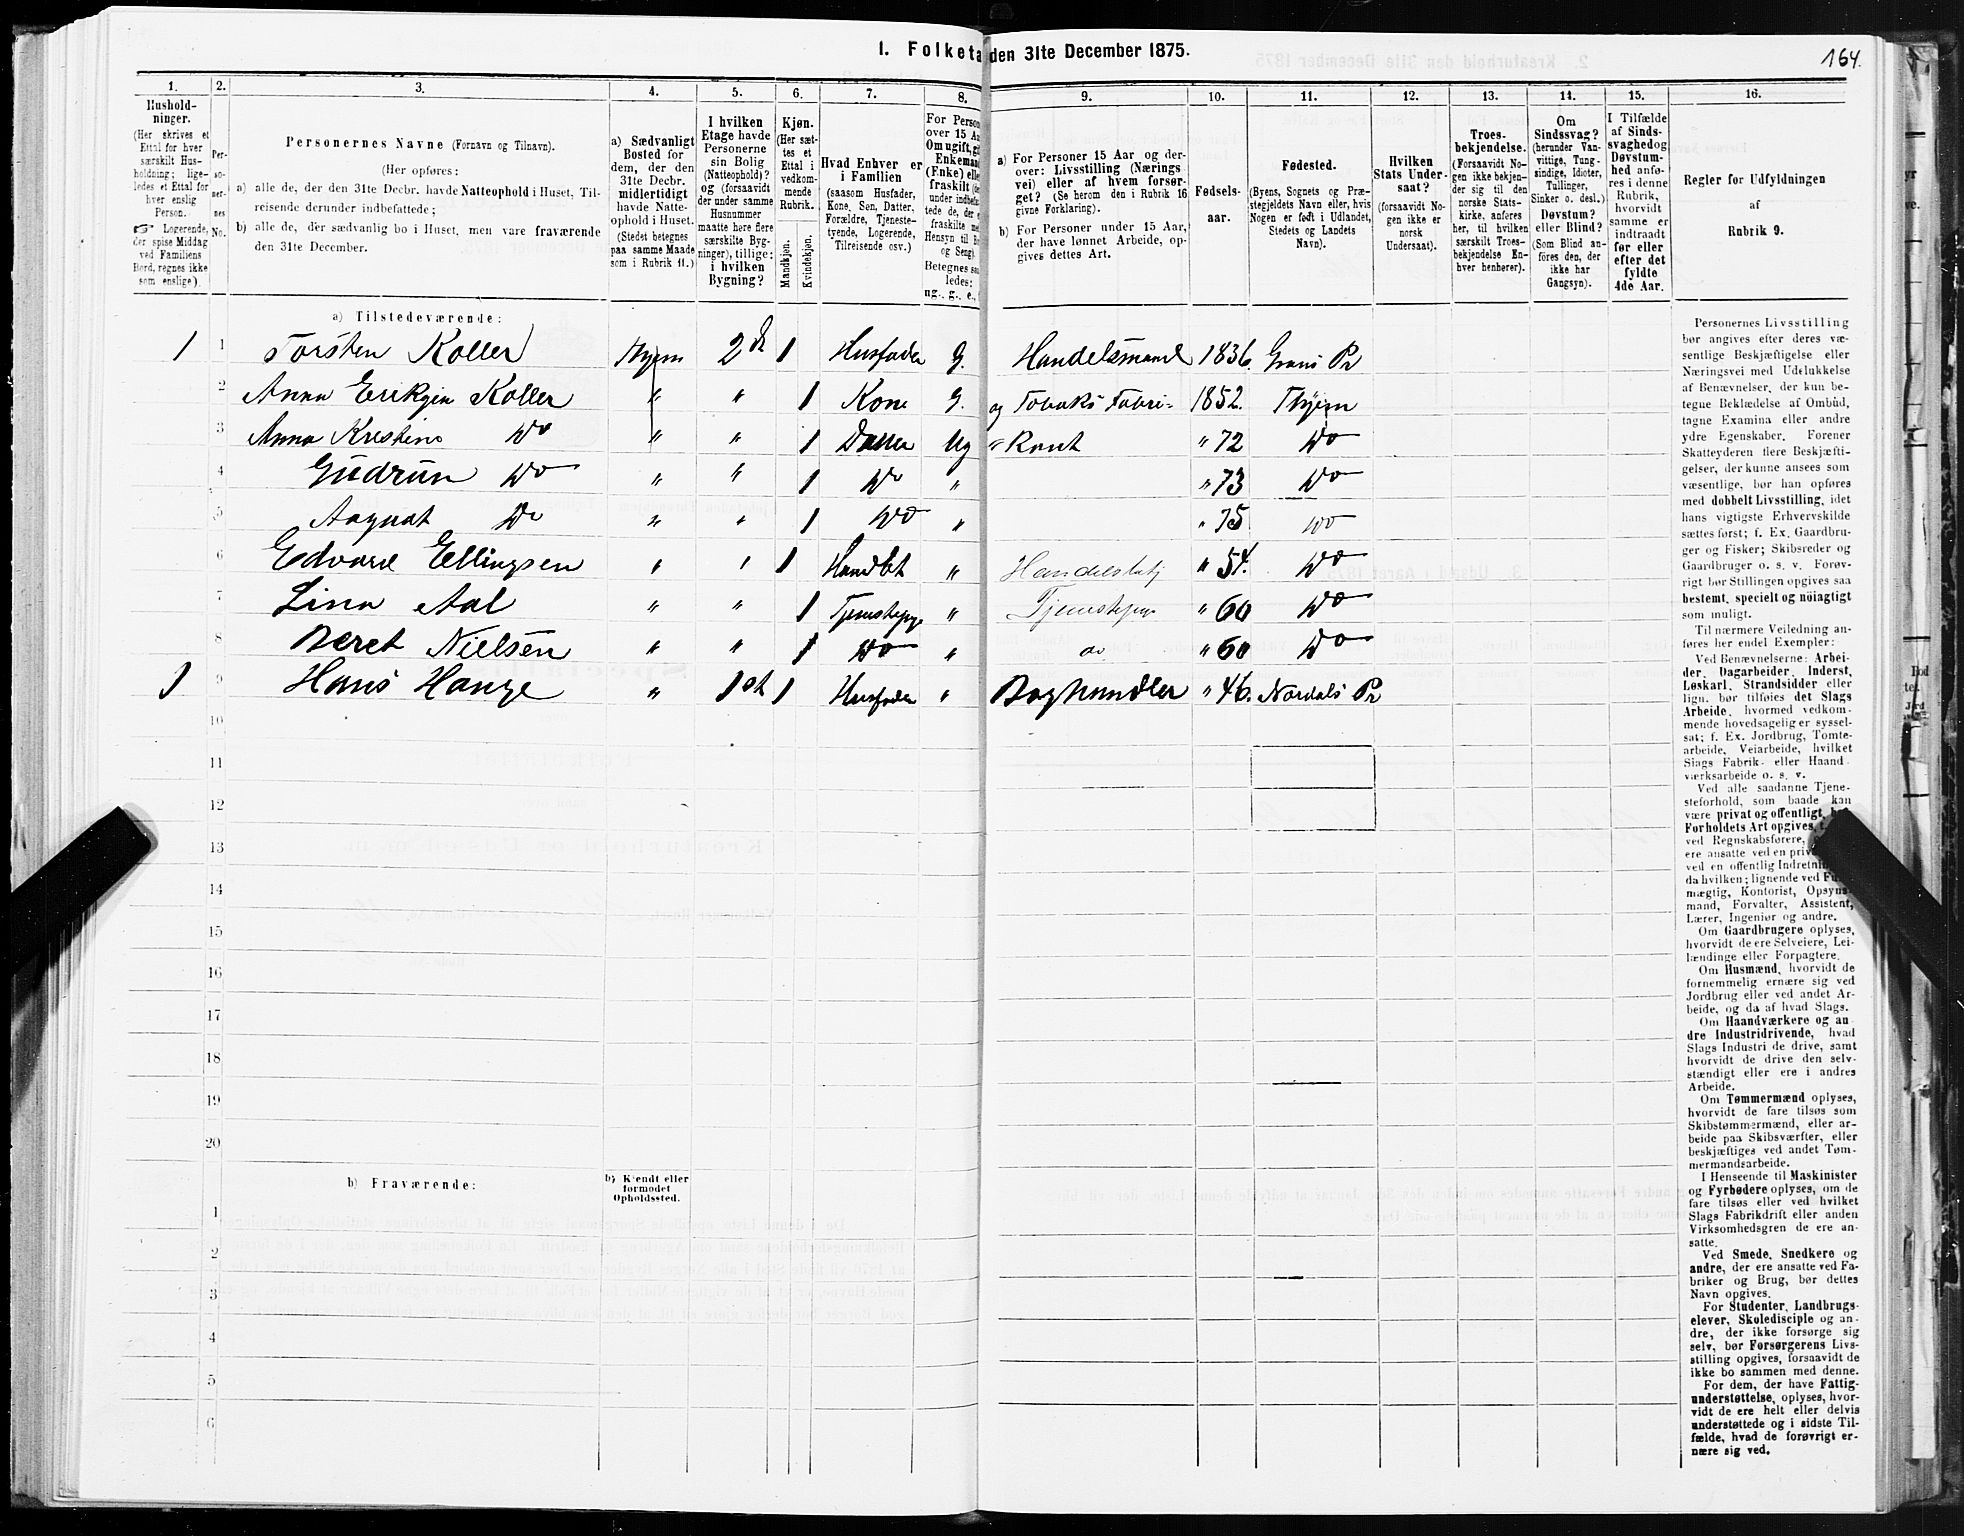 1. Folketæ
den 31te December 1875.
164.
1.
2.
3.
4.
5.
6.
7.
8.
9.
10.
11.
12.
13.
14.
15.
16.
Hushold-
ninger.
(Her skrives et
Ettal for hver
særskilt Hus-
holdning; lige-
ledes et Ettal for
hver enslig
Person.
☞ Logerende,
der spise Middag
ved Familiens
Bord, regnes ikke
som enslige).
Per-
so-
ner-
nes
No.
Personernes Navne (Fornavn og Tilnavn).
(Her opføres:
a) alle de, der den 31te Decbr. havde Natteophold i Huset, Til-
reisende derunder indbefattede;
b) alle de, der sædvanlig bo i Huset, men vare fraværende
den 31te December.
a) Sædvanligt
Bosted for
dem, der den
31te Decbr.
midlertidigt
havde Natte-
ophold i Huset.
(Stedet betegnes
paa samme Maade
som i Rubrik 11.)
I hvilken
Etage havde
Personerne
sin Bolig
(Natteophold)?
og (forsaavidt
der under samme
Husnummer
maatte høre flere
særskilte Byg-
ninger), tillige:
i hvilken
Bygning?
Kjøn.
(Her sæt-
tes et
Ettal i
vedkom-
mende
Rubrik.)
Mandkjøn.
Kvindekjøn.
Hvad Enhver er
i Familien
(saasom Husfader,
Kone, Søn, Datter,
Forældre, Tjeneste-
tyende, Logerende,
Tilreisende osv.)
For Person
over 15 Aa
Om ugift, gi
Enkemand
(Enke) elle
fraskilt
under indbefat-
tede de, der e
fraskilte me
Hensyn til Bo
og Seng).
Betegnes saa
ledes:
ug., g., e.,
a) For Personer 15 Aar og der-
over: Livsstilling (Nærings
vei) eller af hvem forsør-
get? (Se herom den i Rubrik 16
givne Forklaring).
b) For Personer under 15 Aar,
der have lønnet Arbeide, op-
gives dettes Art.
Fødsels-
aar.
Fødested.
(Byens, Sognets og Præ-
stegjeldets Navn eller, hvis
Nogen er født i Udlandet,
Stedets og Landets
Navn).
Hvilken
Stats Under-
saat?
(forsaavidt No-
gen ikke er
norsk
Undersaat).
Troes-
bekjendelse.
(Forsaavidt No-
gen ikke bekjen-
der sig til den
norske Stats-
kirke, anføres
her, til hvilken
særskilt Troes-
bekjendelse En-
hver henhører).
Om
Sindssvag?
(herunder Van-
vittige, Tung-
sindige, Idioter,
Tullinger,
Sinker o. desl.)
Døvstum?
eller Blind?
(Som Blind an-
føres den, der
ikke har
Gangsyn).
I Tilfælde
af Sinds-
svaghed og
Døvstum-
hed anfø-
res i denne
Rubrik,
hvorvidt
samme er
indtraadt
før eller
efter det
fyldte
4de Aar.
Regler for Udfyldningen
af
Rubrik 9.
a) Tilstedeværende:
1 1 Torsten Koller 2 1 Husfader G. Handelsmand 1836. Grans Pr
2 Anna Koller " " 1 Kone G. og Tobaks Fabri- 1852. Thjem
3 Anna Kristine Do " " 1 Datter Ug " Kant " 72 Do
4 Gudrun Do " " 1 Do " " 73 Do
5 Aagnat Do " " 1 Do " " 75 Do
6 Edvard Ellingsen " " 1 " " 54. Do
7 Lina Aal " " 1 Tjenestepge " Tjenestepge " 60 Do
8 Beret Nielsen " " 1 Do " do " 60 Do
1 9 Hans Hange " 1st 1 Husfader " Boghandler " 46. Nordals Pr
10
11
12
13
14
15
16
17
18
19
20
b) Fraværende:
b) Kjendt eller
formodet
Opholdssted.
1
2
3
4
5
6
Personernes Livsstilling
bør angives efter deres væ-
sentlige Beskjæftigelse eller
Næringsvei med Udelukkelse
af Benævnelser, der kun be-
tegne Beklædelse af Ombud,
tagne Examina eller andre
ydre Egenskaber. Forener
Skatteyderen flere Beskjæfti-
gelser, der kunne ansees som
væsentlige, bør han opføres
med dobbelt Livsstilling, idet
hans vigtigste Erhvervskilde
sættes først; f. Ex. Gaardbru-
ger og Fisker; Skibsreder og
Gaardbruger o. s. v. Forøv-
rigt bør Stillingen opgives saa
bestemt, specielt og nöiagtigt
som muligt.
Til nærmere Veiledning an-
føres her endel Exempler:
Ved Benævnelserne: Arbei-
der, Dagarbeider, Inderst,
Løskarl, Strandsidder eller
lign. bør tilføies det Slags
Arbeide, hvormed vedkom-
mende hovedsagelig er syssel-
sat; f. Ex. Jordbrug, Tomte-
arbeide, Veiarbeide, hvilket
Slags Fabrik- eller Haand-
værksarbeide o. s. v.
Ved alle saadanne Tjene-
steforhold, som baade kan
være privat og offentligt,
Forholdets Art opgives,
ved Regnskabsførere,
ere ansatte ved en priv
ved en offentlig Indretni
da hvilken; lignende ved
mægtig, Kontorist, Opsyns-
mand, Forvalter, Assistent,
Lærer, Ingeniør og andre.
Om Gaardbrugere oplyses,
hvorvidt de ere Selveiere, Lei-
lændinge eller Forpagtere.
Om Husmænd, hvorvidt de
fornemmelig ernære sig ved
Jordbrug eller ved andet Ar-
beide, og da af hvad Slags.
Om Haandværkere og an-
dre Industridrivende, hvad
Slags Industri de drive, samt
hvorvidt de drive den selv-
stændigt eller ere i andres
Arbeide.
Om Tømmermænd oplyses,
hvorvidt de fare tilsøs som
Skibstømmermænd, eller ar-
beide paa Skibsværfter, eller
beskjæftiges ved andet Tøm-
mermandsarbeide.
I Henseende til Maskinister
og Fyrbødere oplyses, om de
fare tilsøs eller ved hvilket
Slags Fabrikdrift eller anden
Virksomhedsgren de ere an-
satte.
Ved Smede, Snedkere og
andre, der ere ansatte ved Fa-
briker og Brug, bør dettes
Navn opgives.
For Studenter, Landbrugs-
elever, Skoledisciple og an-
dre, der ikke forsørge sig
selv, bør Forsørgerens Livs-
stilling opgives, forsaavidt de
ikke bo sammen med denne.
For dem, der have Fattig-
understøttelse, oplyses, hvor-
vidt de ere helt eller delvis
understøttede og i sidste Til-
fælde, hvad de forøvrigt er-
nære sig ved.